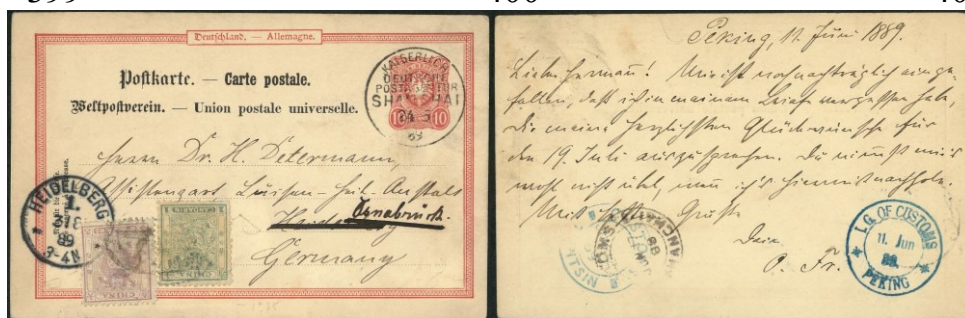 Deutschland. — Allemagne.
Postkarte. — Carte postale.
Weltpostverein. — Union postale universelle.
KAISERLICH
DEUTSCHE
POSTAGENTUR
SHANGHAI
89
10 10
Herrn Dr. H. Determann,
Assistenzarzt Luisen-Heil-Anstalt
Osnabrück.
Germany
HEIDELBERG
1.
89
3-4N
CHINA
Peking, 11. Juni 1889.
Lieber Hermann! Mir ist noch nachträglich einge-
fallen, daß ich in meinem Brief vergessen hab,
Dir meine herzlichsten Glückwünsche für
den 19. Juli auszusprechen. Du nimmst mir's
wohl nicht übel, wenn ich's hiermit nachhole.
Mit Gruß
Dein
O. Fr.
I.G. OF CUSTOMS
11. Jun
89.
PEKING